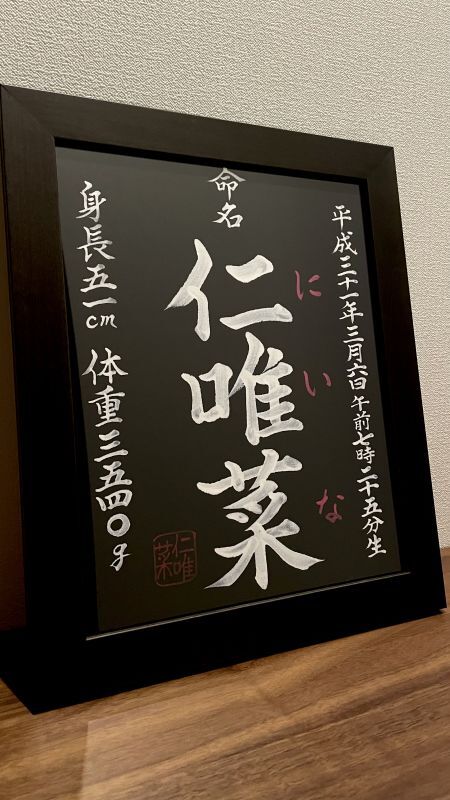 命名
平成三十一年三月六日 午前七時二十五分生
にいな
仁唯菜
身長五一cm 体重三五四〇g
仁唯菜